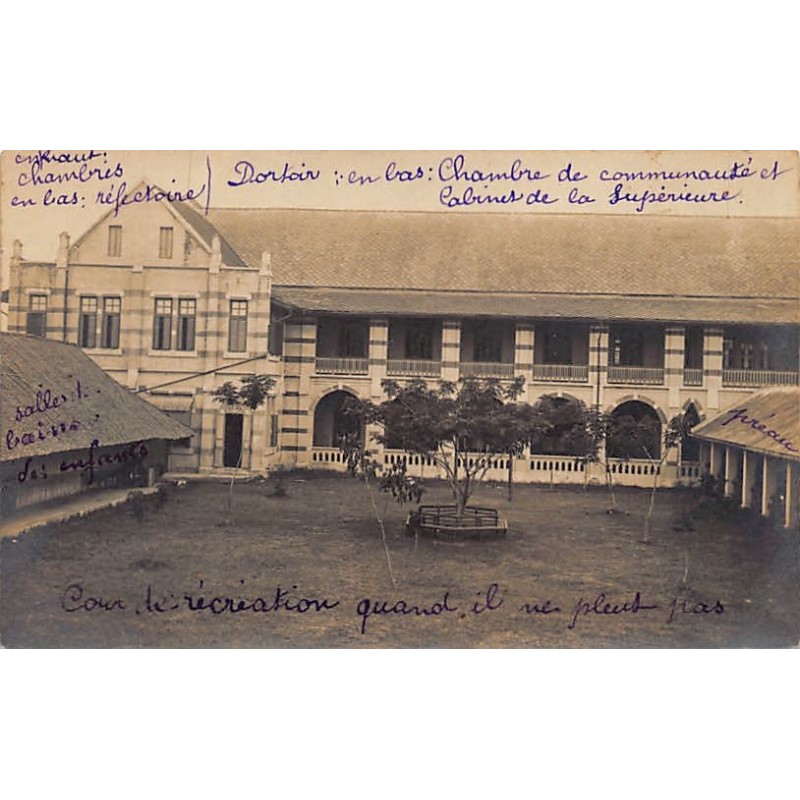 en haut:
chambres
en bas: réfectoire
Dortoir : en bas: Chambre de communauté et
Cabinet de la Supérieure.
salle
bains
des enfants
préau
Cour de récréation quand il ne pleut pas